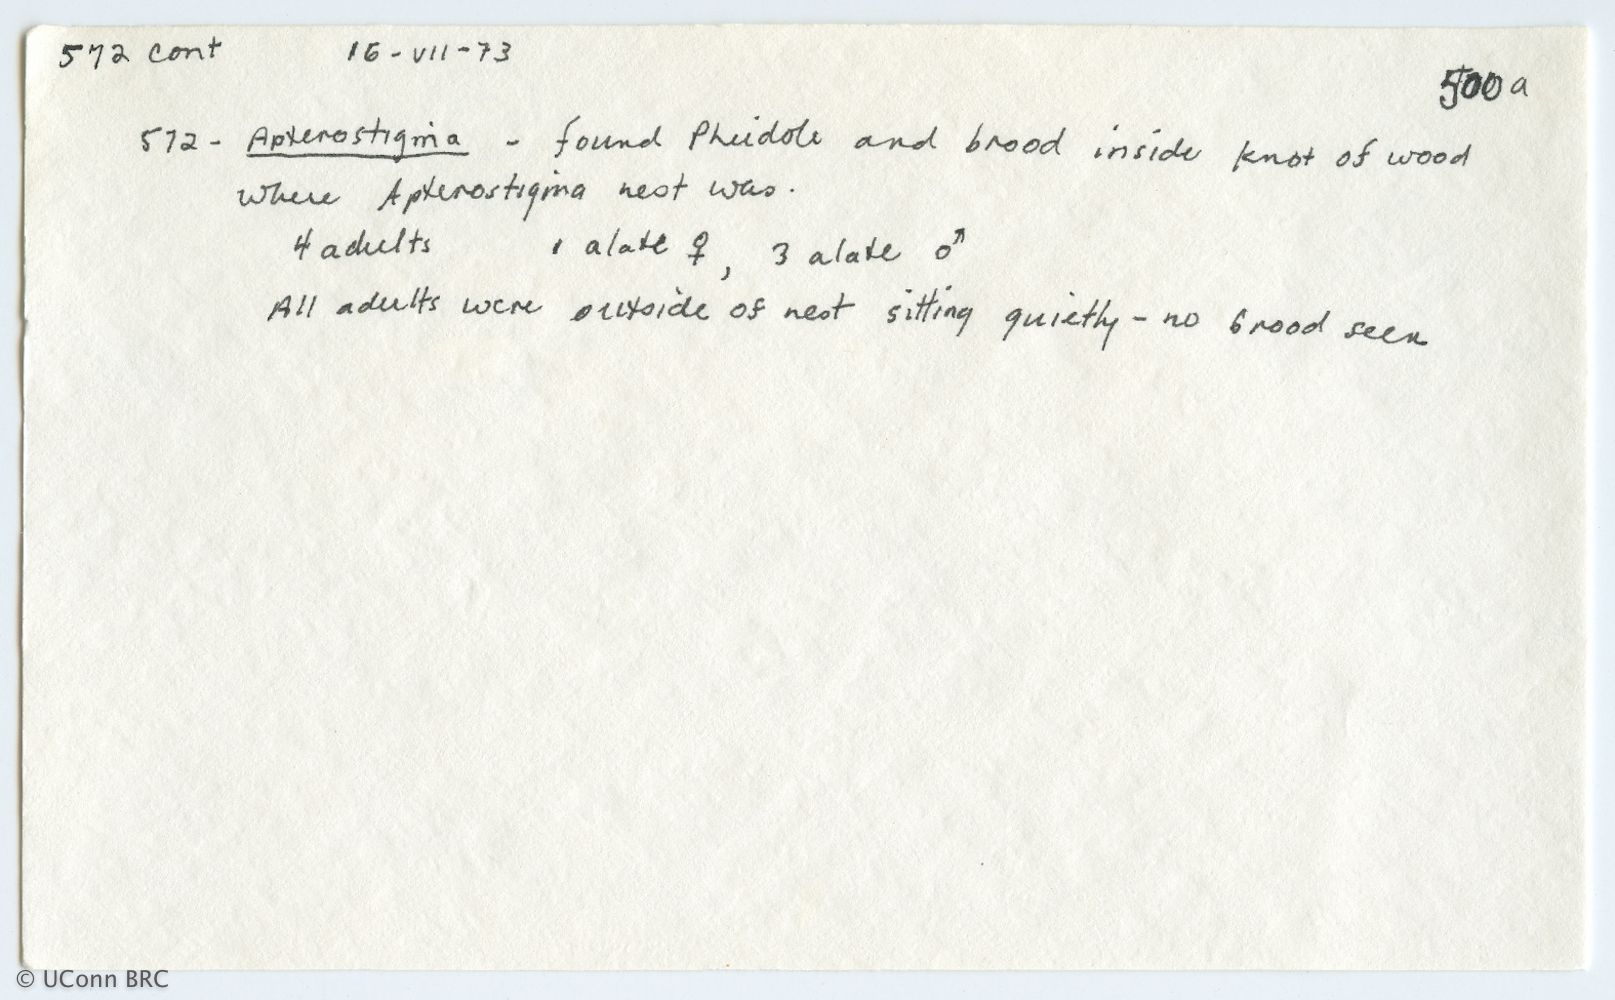 572 cont 16-VII-73
500 a
572 - Apterostigma - found Pheidole and brood inside knot of wood
where Apterostigma nest was.
4 adults 1 alate ♀, 3 alate ♂
All adults were outside of nest sitting quietly - no brood seen
© UConn BRC